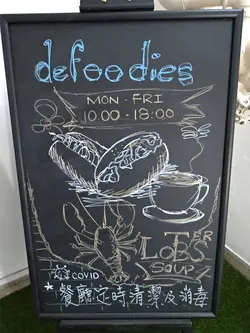 defoodies
MON - FRI
10:00 - 18:00
LOBSTER
SOUP
COVID
*餐廳定時清潔及消毒